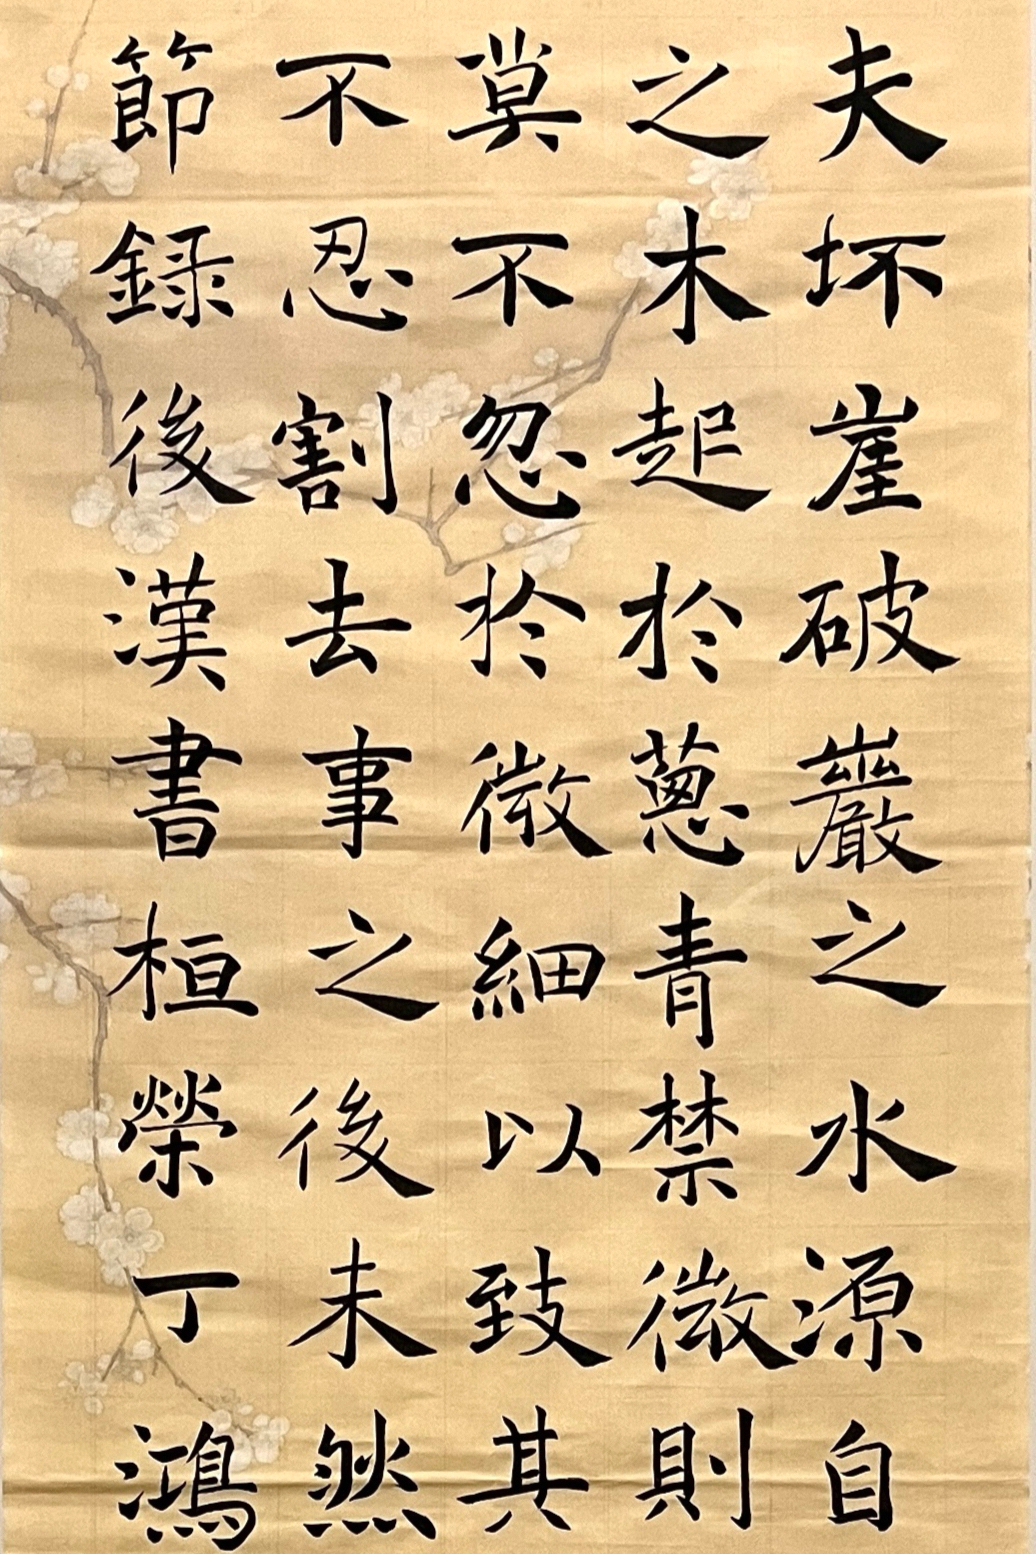 夫坏崖破巖之水源自
之木起於蔥青禁微則
莫不忽於微細以致其
不忍割去事之後未然
節録後漢書桓榮丁鴻